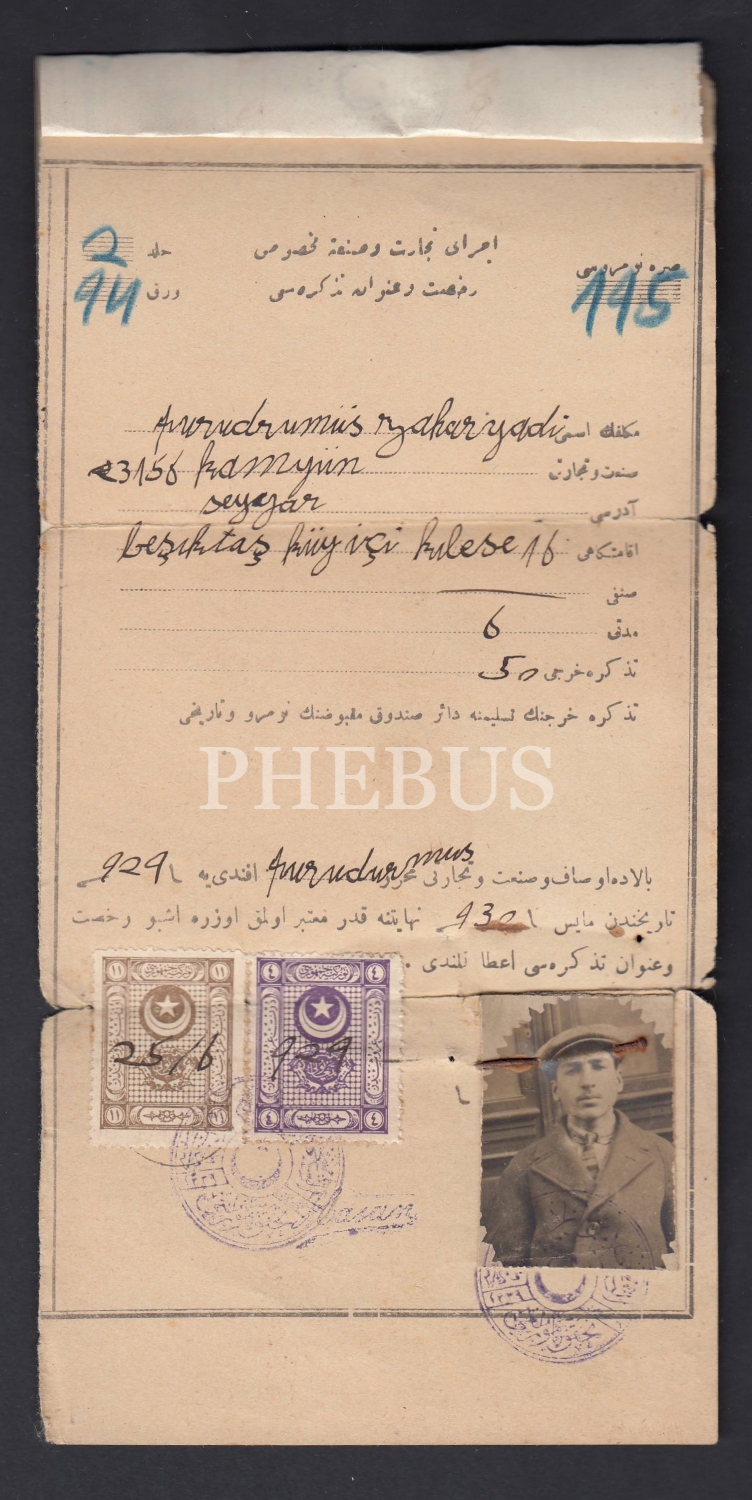 اجرای تجارت وصنعته مخصوص
رخصت وعنوان تذكره‌سی
صره نومروسی
195
جلد 2
ورق 94
مكلفك اسمی purudrumüs zaharyadi
صنعت وتجارتی kamyün 3156
آدرسی seyyar
اقامتكاهی beşıktaş küy içi kılese 16
صنفی
مدتی 6
تذكره خرجی 50
تذكره خرجنك تسلیمنه دائر صندوق مقبوضنك نومرو وتاریخی
PHEBUS
بالاده اوصاف وصنعت وتجارتی محرر purudurmus افندی‌یه 929
تاریخندن مایس 930 نهایتنه قدر معتبر اولمق اوزره اشبو رخصت
وعنوان تذكره‌سی اعطا قلندی .
١١ ١١
٤ ٤
25/6 929
١١ ١١
٤ ٤